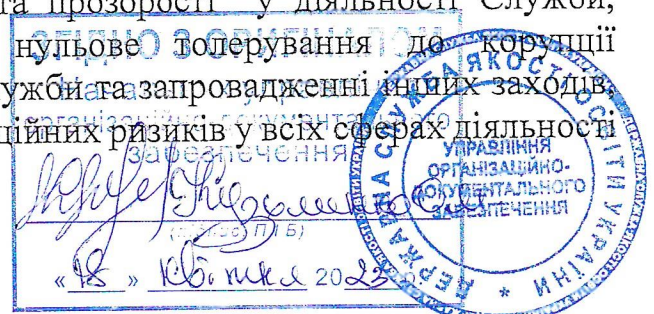 та прозорості у діяльності Служби,
нульове толерування до корупції
ужби та запровадженні інших заходів,
ційних ризиків у всіх сферах діяльності
ЗГІДНО З ОРИГІНАЛОМ
організаційно-документального
забезпечення
« 18 » квітня 2023
ДЕРЖАВНА СЛУЖБА ЯКОСТІ ОСВІТИ УКРАЇНИ *
УПРАВЛІННЯ
ОРГАНІЗАЦІЙНО-
ДОКУМЕНТАЛЬНОГО
ЗАБЕЗПЕЧЕННЯ